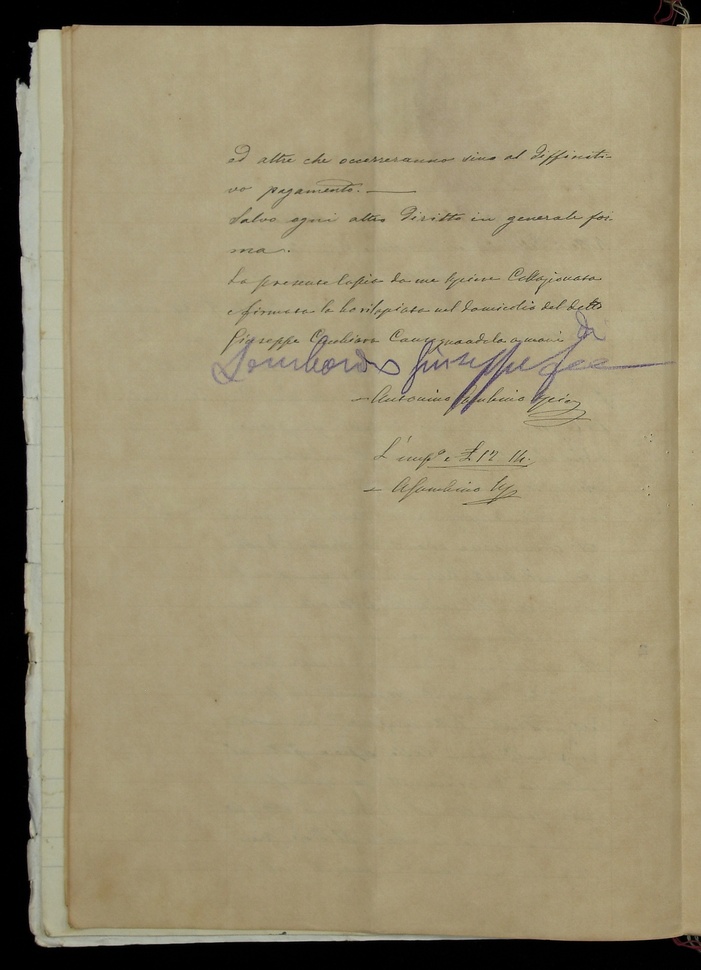 ed altre che occorreranno sino al diffiniti-
vo pagamento. —
Salvo ogni altro diritto in generale for-
ma.
La presente Copia da me Usciere Collazionata
e firmata la ho rilasciata nel domicilio del detto
Giuseppe Consegnandola a mani di
Lombardo Giuseppe
— Antonino Gambino Usciere
L'imp.o e £ 12
— AGambino